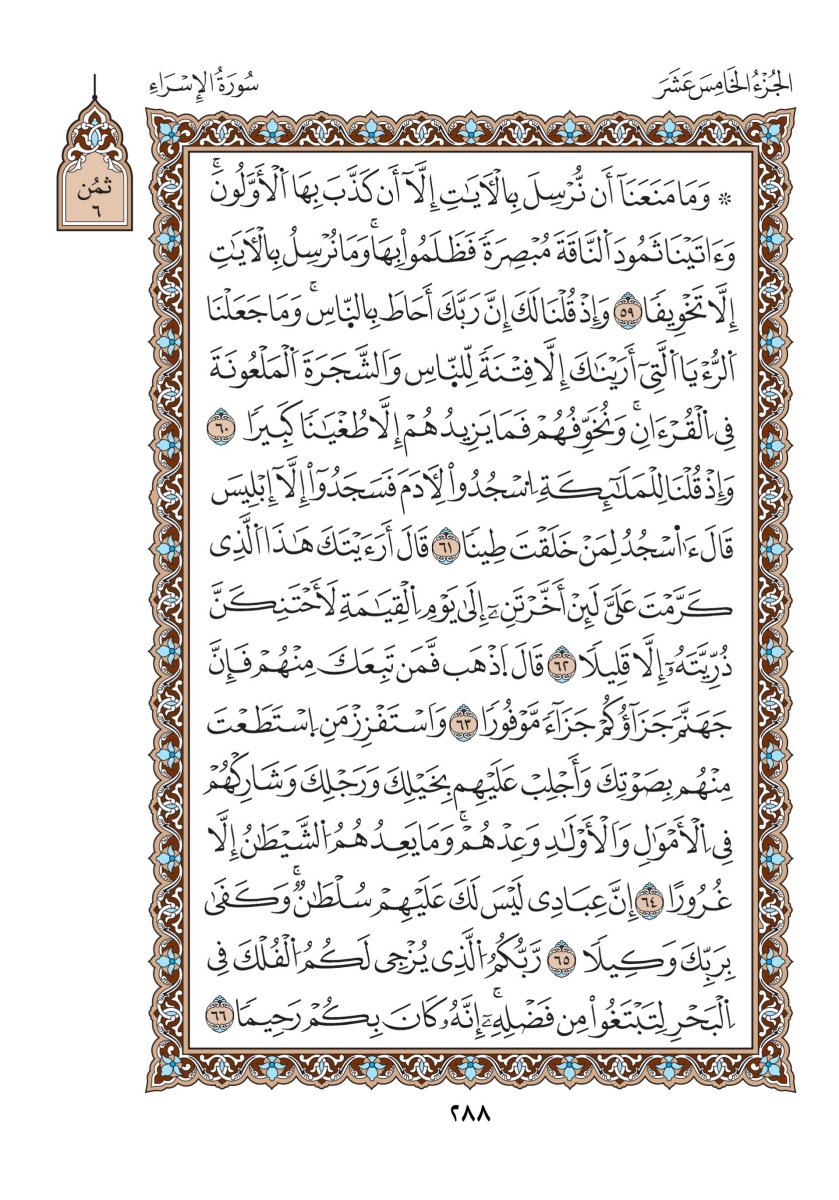 الجُزْءُ الخَامِسَ عَشَرَ
سُورَةُ الإِسْرَاءِ
ثُمُن
٦
۞ وَمَا مَنَعَنَآ أَن نُّرْسِلَ بِالْأٓيَٰتِ إِلَّآ أَن كَذَّبَ بِهَا اَ۬لْأَوَّلُونَۖ
وَءَاتَيْنَا ثَمُودَ اَ۬لنَّاقَةَ مُبْصِرَةٗ فَظَلَمُواْ بِهَاۖ وَمَا نُرْسِلُ بِالْأٓيَٰتِ
إِلَّا تَخْوِيفٗا ٥٩ وَإِذْ قُلْنَا لَكَ إِنَّ رَبَّكَ أَحَاطَ بِالنَّاسِۖ وَمَا جَعَلْنَا
اَ۬لرُّءْيَا اَ۬لَّتِےٓ أَرَيْنَٰكَ إِلَّا فِتْنَةٗ لِّلنَّاسِ وَالشَّجَرَةَ اَ۬لْمَلْعُونَةَ
فِے اِ۬لْقُرْءَانِۖ وَنُخَوِّفُهُمْ فَمَا يَزِيدُهُمْ إِلَّا طُغْيَٰنٗا كَبِيرٗا ٦٠
وَإِذْ قُلْنَا لِلْمَلَٰٓئِكَةِ اِ۟سْجُدُواْ لِأٓدَمَ فَسَجَدُوٓاْ إِلَّآ إِبْلِيسَ
قَالَ ءَا۬سْجُدُ لِمَنْ خَلَقْتَ طِينٗا ٦١ قَالَ أَرَءَيْتَكَ هَٰذَا اَ۬لَّذِے
كَرَّمْتَ عَلَيَّ لَئِنْ أَخَّرْتَنِۦٓ إِلَىٰ يَوْمِ اِ۬لْقِيَٰمَةِ لَأَحْتَنِكَنَّ
ذُرِّيَّتَهُۥٓ إِلَّا قَلِيلٗا ٦٢ قَالَ اَ۪ذْهَب فَّمَن تَبِعَكَ مِنْهُمْ فَإِنَّ
جَهَنَّمَ جَزَآؤُكُمْ جَزَآءٗ مَّوْفُورٗا ٦٣ وَاسْتَفْزِزْ مَنِ اِ۪سْتَطَعْتَ
مِنْهُم بِصَوْتِكَ وَأَجْلِبْ عَلَيْهِم بِخَيْلِكَ وَرَجْلِكَ وَشَارِكْهُمْ
فِے اِ۬لْأَمْوَٰلِ وَالْأَوْلَٰدِ وَعِدْهُمْۖ وَمَا يَعِدُهُمُ اُ۬لشَّيْطَٰنُ إِلَّا
غُرُورًا ٦٤ إِنَّ عِبَادِے لَيْسَ لَكَ عَلَيْهِمْ سُلْطَٰنٞۖ وَكَفَىٰ
بِرَبِّكَ وَكِيلٗا ٦٥ رَّبُّكُمُ اُ۬لَّذِے يُزْجِے لَكُمُ اُ۬لْفُلْكَ فِے
اِ۬لْبَحْرِ لِتَبْتَغُواْ مِن فَضْلِهِۦٓۖ إِنَّهُۥ كَانَ بِكُمْ رَحِيمٗا ٦٦
٢٨٨